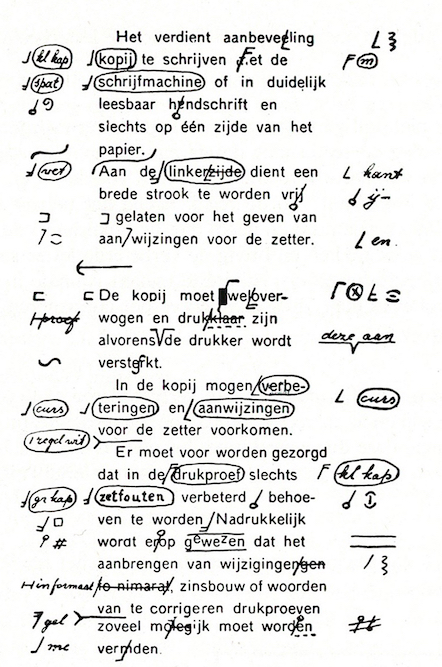 Het verdient aanbeveeling
kl kap kopij te schrijven et de F m
spat schrijfmachine of in duidelijk
leesbaar hendschrift en
slechts op één zijde van het
papier.
vet Aan de linkerzijde dient een kant
brede strook te worden vrij ij
gelaten voor het geven van
aan wijzingen voor de zetter. en.
De kopij moet weloverwogen
wogen en drukklaar zijn
proef alvorens de drukker wordt deze aan
versterkt.
In de kopij mogen verbe-
curs teringen en aanwijzingen curs
voor de zetter voorkomen.
1 regel wit Er moet voor worden gezorgd
dat in de drukproef slechts F kl kap
gr kap zetfouten verbeterd behoe-
ven te worden Nadrukkelijk
# wordt erop gewezen dat het
aanbrengen van wijzigingengen
informast to nimarat, zinsbouw of woorden
van te corrigeren drukproeven
gel zoveel molegijk moet worden
me verniden.